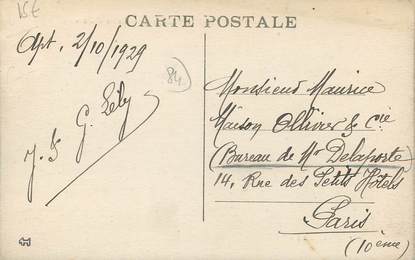 15€
CARTE POSTALE
Apt, 2/10/1929
84
G. Lély
J. S
Monsieur Maurice
Maison Ollivier & Cie
(Bureau de Mr Delaporte)
14, Rue des Petits Hôtels
Paris
(10ème)